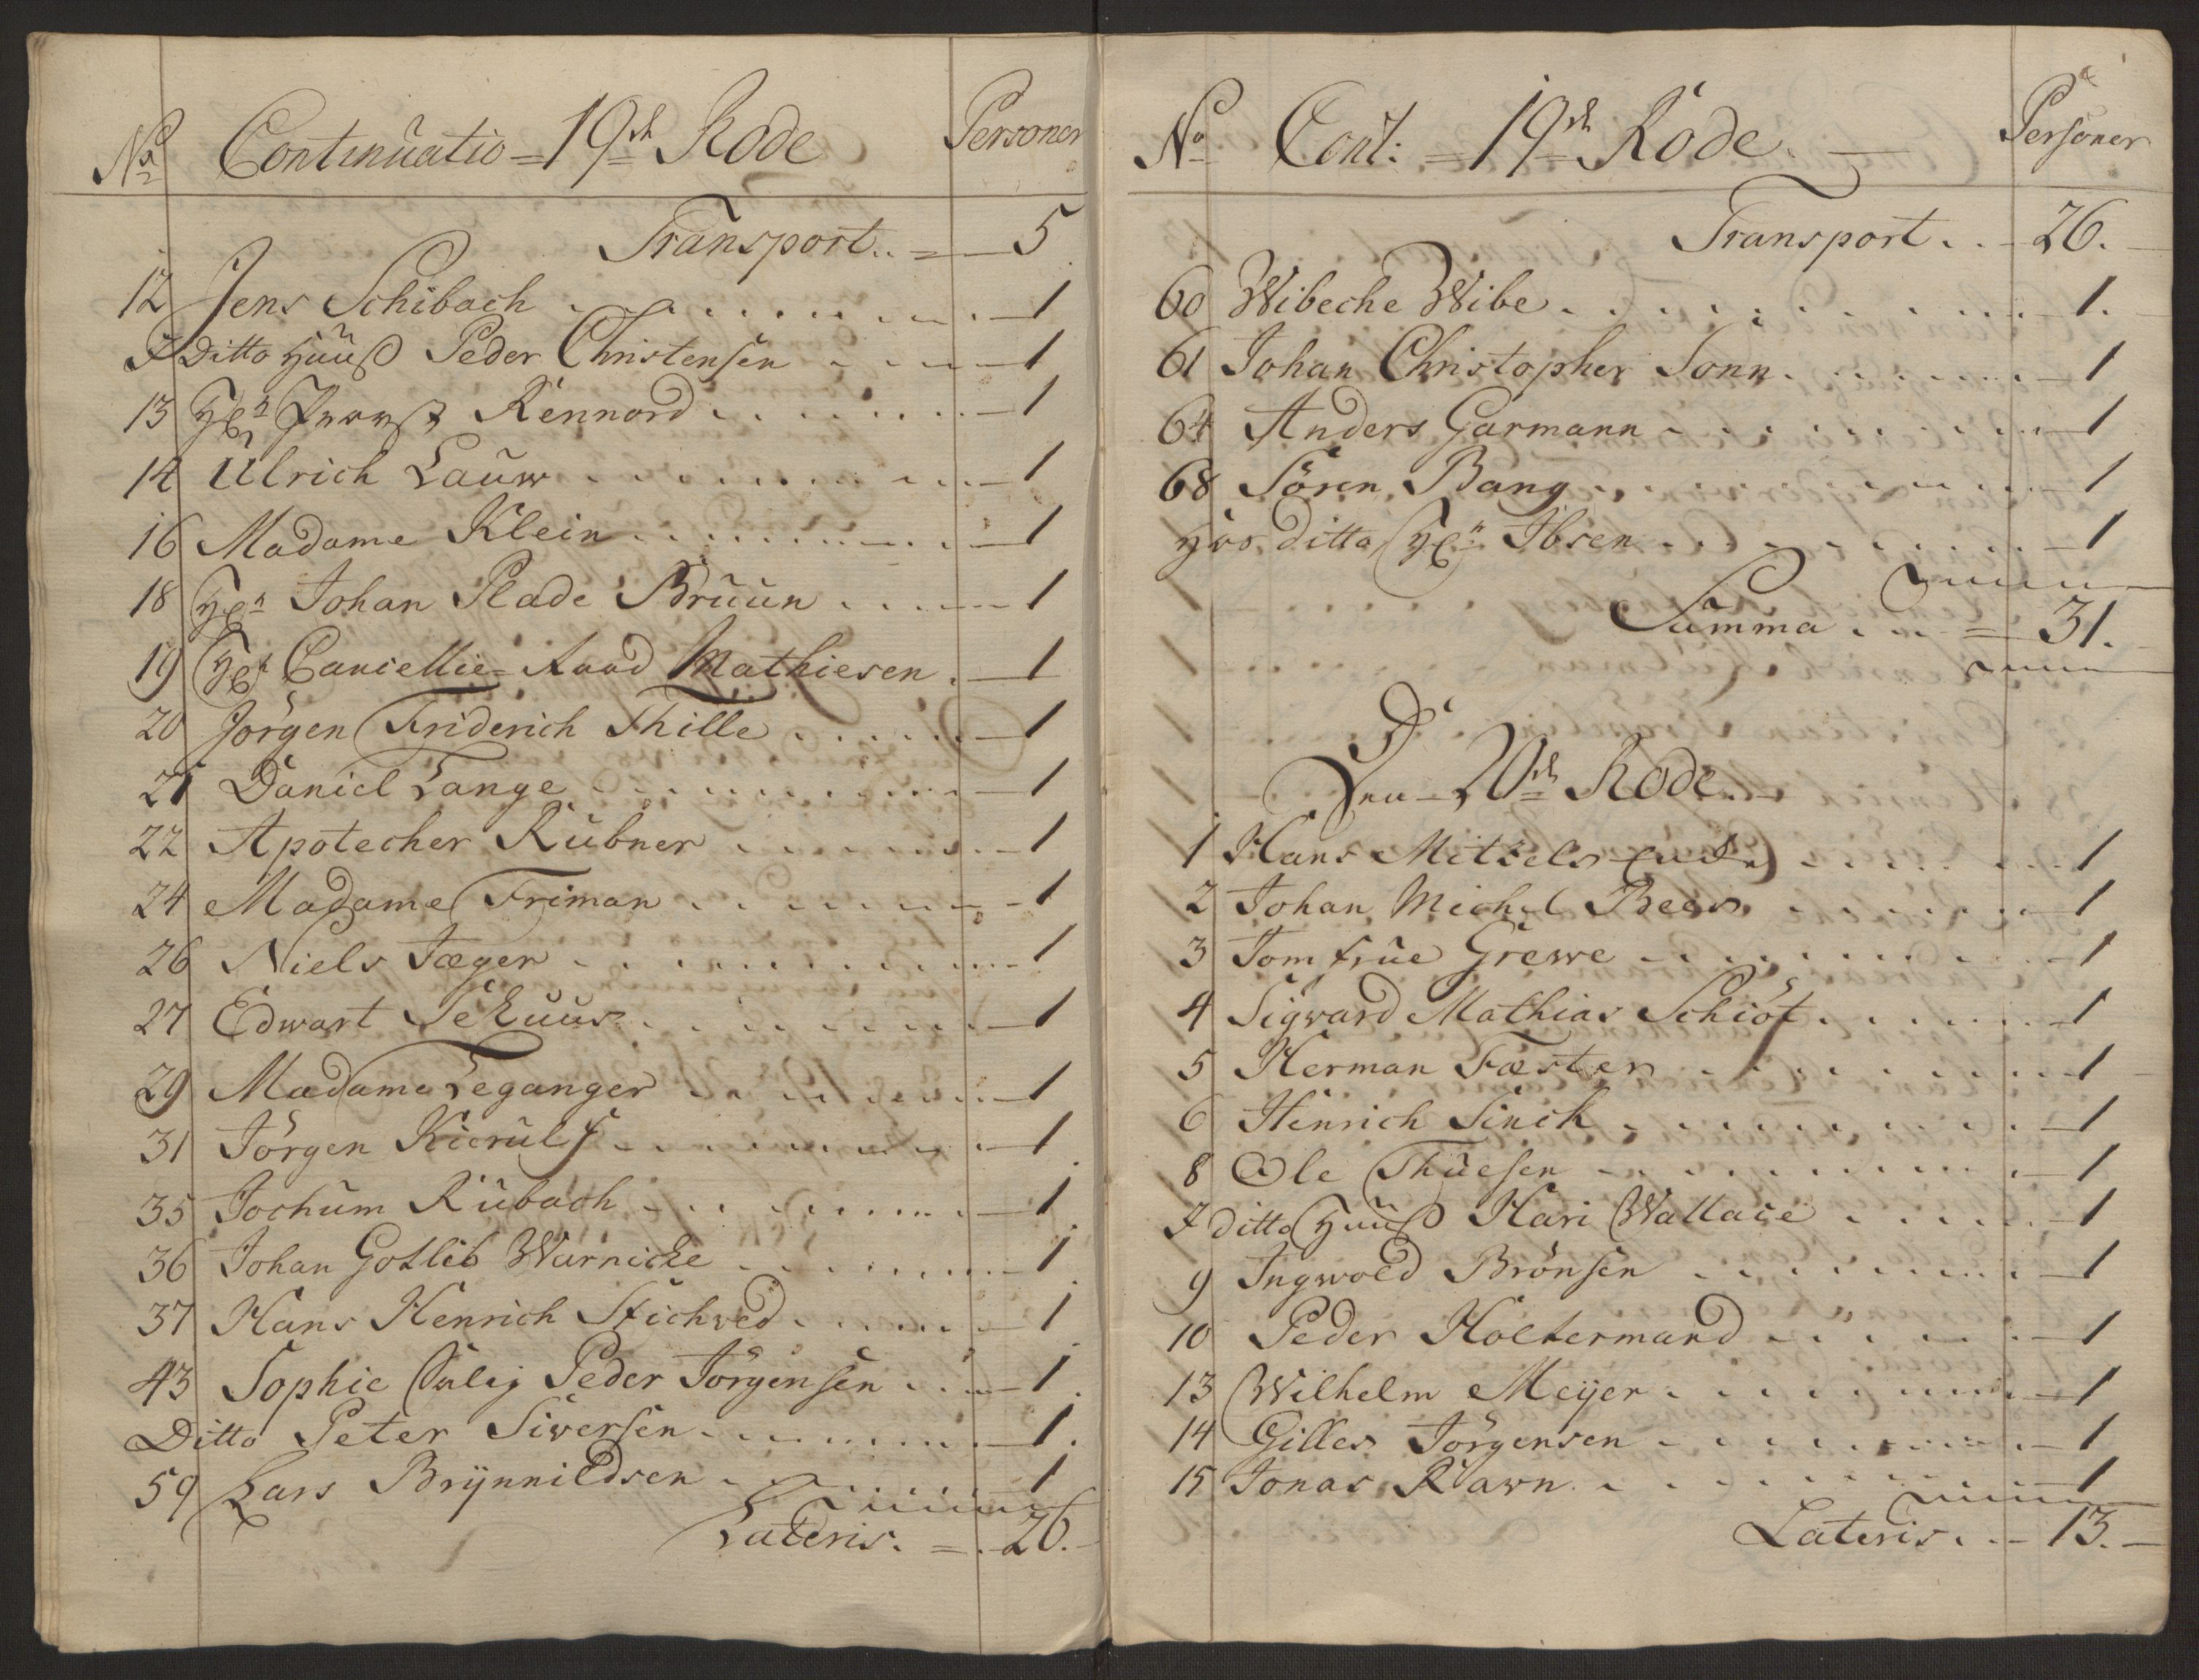 No Continuatio = 19de Rode Personer
Transport .. = 5
12 Jens Schibach 1
I Ditto Huuß Peder Christensen 1
13 Hr Provst Rennord 1
14 Ulrich Lauw 1
16 Madame Klein 1
18 Hr Johan Plade Bruun 1
19 Hr Cancellie-Raad Mathiesen 1
20 Jörgen Friderich Thille 1
21 Daniel Lange 1
22 Apotecher Rübner 1
24 Madame Friman 1
26 Niels Jæger 1
27 Edwart 1
29 Madame Leganger 1
31 Jörgen Kierulf 1
35 Jochum Rübach 1
36 Johan Gotlieb Warnicke 1
37 Hans Henrich Stichved 1
43 Sophie Salig Peder Jörgensen 1
Ditto Peter Siversen 1
59 Lars Brÿnnildsen 1
Lateris. = 26.
No Cont: = 19de Rode. Personer
Transport . . 26.
60 Wibeche Wibe 1.
61 Johan Christopher Sonn 1
64 Anders Garmann 1
68 Sören Bang 1
hos ditto Hr Ibsen 1
Summa . . = 31.
Den 20de Rode.
1 Hans Mitzels 1
2 Johan Michel Beer 1
3 Jomfrue Grewe 1
4 Sigvard Mathias Schiöt 1
5 Herman Fæster 1
6 Hinrich Sinch 1
8 Ole Thuesen 1
I ditto Huuß Hari Wallace 1
9 Ingwold Brönsen 1
10 Peder Holtermand 1
13 Wilhelm Meÿer 1
14 Gilles Jörgensen 1
15 Jonas Rawn 1
Lateris . . 13.